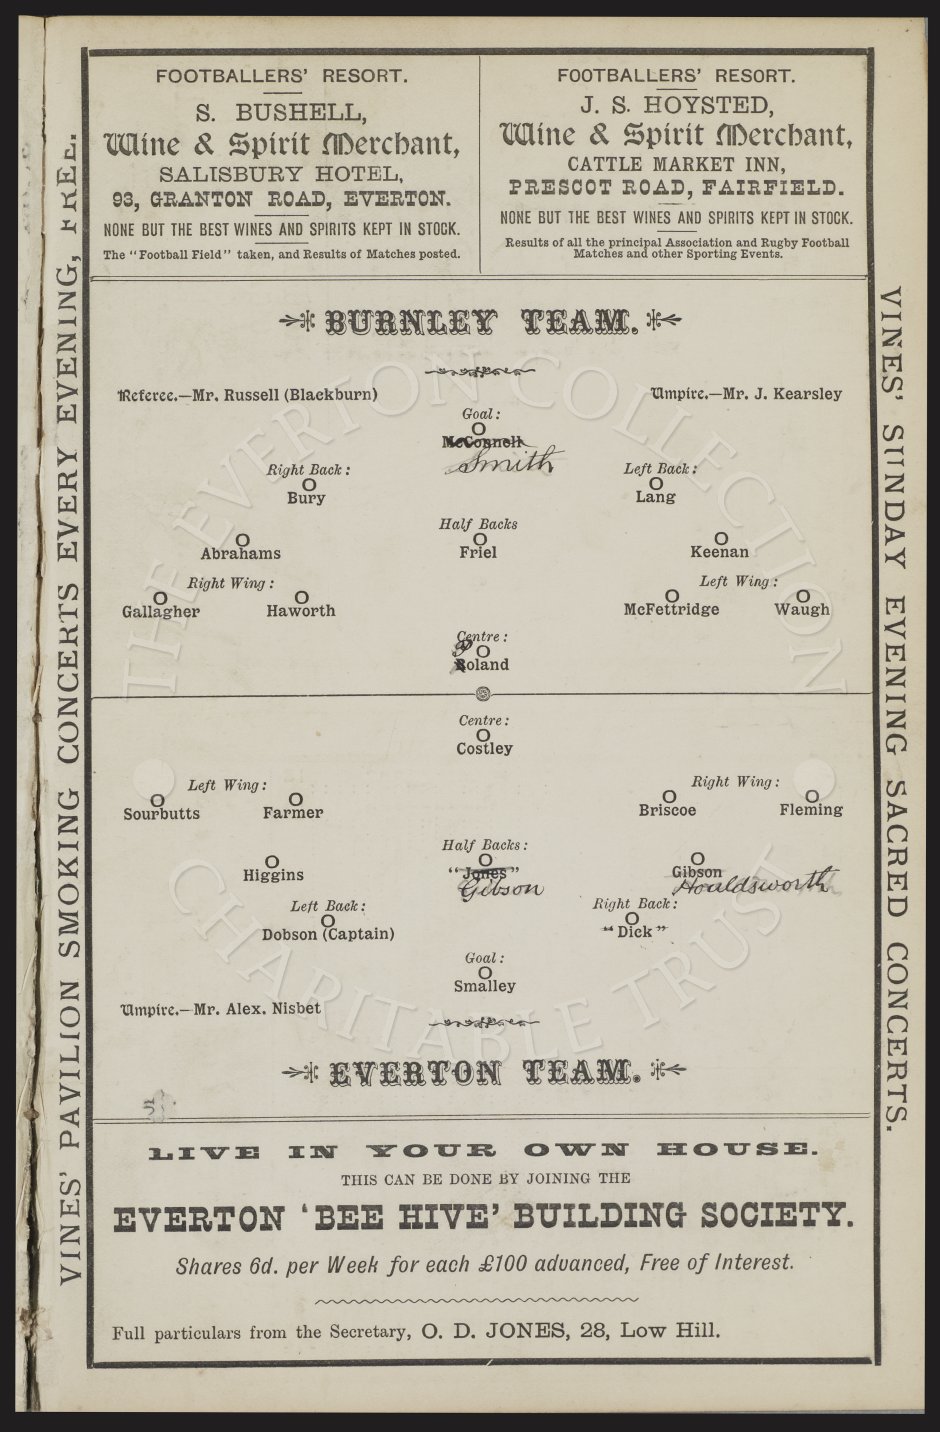 FOOTBALLERS' RESORT.
S. BUSHELL,
Wine & Spirit Merchant,
SALISBURY HOTEL,
93, GRANTON ROAD, EVERTON.
NONE BUT THE BEST WINES AND SPIRITS KEPT IN STOCK.
The "Football Field" taken, and Results of Matches posted.
FOOTBALLERS' RESORT.
J. S. HOYSTED,
Wine & Spirit Merchant,
CATTLE MARKET INN,
PRESCOT ROAD, FAIRFIELD.
NONE BUT THE BEST WINES AND SPIRITS KEPT IN STOCK.
Results of all the principal Association and Rugby Football
Matches and other Sporting Events.
VINES' PAVILION SMOKING CONCERTS EVERY EVENING, FREE.
BURNLEY TEAM.
Referee.—Mr. Russell (Blackburn) Umpire.—Mr. J. Kearsley
Goal:
O
McConnell
Smith
Right Back: Left Back:
O O
Bury Lang
Half Backs
O O O
Abrahams Friel Keenan
Right Wing: Left Wing:
O O O O
Gallagher Haworth McFettridge Waugh
Centre:
P O
Roland
Centre:
O
Costley
Left Wing: Right Wing:
O O O O
Sourbutts Farmer Briscoe Fleming
Half Backs:
O O O
Higgins "Jones" Gibson
Gibson Houldsworth
Left Back: Right Back:
O O
Dobson (Captain) "Dick"
Goal:
O
Smalley
Umpire.—Mr. Alex. Nisbet
EVERTON TEAM.
VINES' SUNDAY EVENING SACRED CONCERTS.
LIVE IN YOUR OWN HOUSE.
THIS CAN BE DONE BY JOINING THE
EVERTON 'BEE HIVE' BUILDING SOCIETY.
Shares 6d. per Week for each £100 advanced, Free of Interest.
Full particulars from the Secretary, O. D. JONES, 28, Low Hill.
THE EVERTON COLLECTION
CHARITABLE TRUST